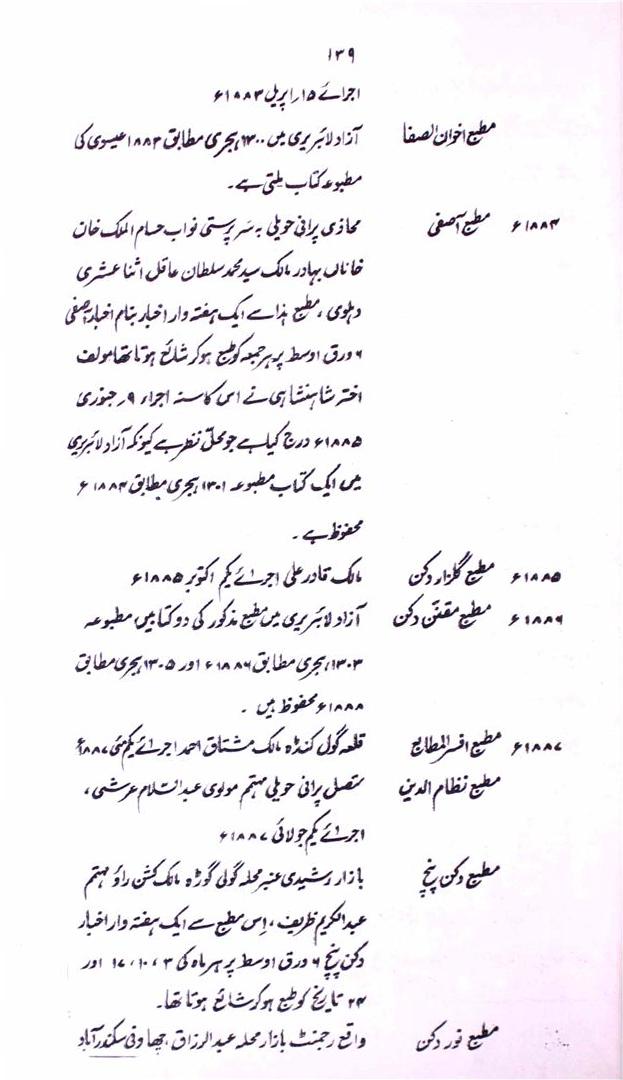 ۱۳۹
اجرائے ۱۵؍اپریل ۱۸۸۳ء
مطبع اخوان الصفا آزاد لائبریری میں ۱۳۰۰ ہجری مطابق ۱۸۸۳ عیسوی کی
مطبوعہ کتاب ملتی ہے۔
۱۸۸۴ء مطبع آصفی محاذی پرانی حویلی بہ سرپرستی نواب حسام الملک خان
خاناں بہادر مالک سید محمد سلطان عاقل اثنا عشری
دہلوی، مطبع ہذا سے ایک ہفتہ وار اخبار بنام اخبار آصفی
۶ ورق اوسط پر ہر جمعہ کو طبع ہو کر شائع ہوتا تھا مولف
اختر شاہنشاہی نے اس کا سنہ اجراء ۹؍جنوری
۱۸۸۵ء درج کیا ہے جو محل نظر ہے کیونکہ آزاد لائبریری
میں ایک کتاب مطبوعہ ۱۳۰۱ ہجری مطابق ۱۸۸۴ء
محفوظ ہے۔
۱۸۸۵ء مطبع گلزار دکن مالک قادر علی اجرائے یکم اکتوبر ۱۸۸۵ء
۱۸۸۶ء مطبع مقنن دکن آزاد لائبریری میں مطبع مذکور کی دو کتابیں مطبوعہ
۱۳۰۳ ہجری مطابق ۱۸۸۶ء اور ۱۳۰۵ ہجری مطابق
۱۸۸۸ء محفوظ ہیں۔
۱۸۸۷ء مطبع افسر المطابع قلعہ گول کنڈہ مالک مشتاق احمد اجرائے یکم مئی ۱۸۸۷ء
مطبع نظام الدین متصل پرانی حویلی مہتمم مولوی عبدالسلام عرشی،
اجرائے یکم جولائی ۱۸۸۷ء
مطبع دکن پنچ بازار رشیدی عنبر محلہ گولی گوڑہ مالک کشن راؤ مہتمم
عبدالکریم ظریف، اِس مطبع سے ایک ہفتہ وار اخبار
دکن پنچ ۶ ورق اوسط پر ہر ماہ کی ۳، ۱۰، ۱۷ اور
۲۴ تاریخ کو طبع ہو کر شائع ہوتا تھا۔
مطبع نور دکن واقع رجمنٹ بازار محلہ عبدالرزاق، چھاونی سکندرآباد